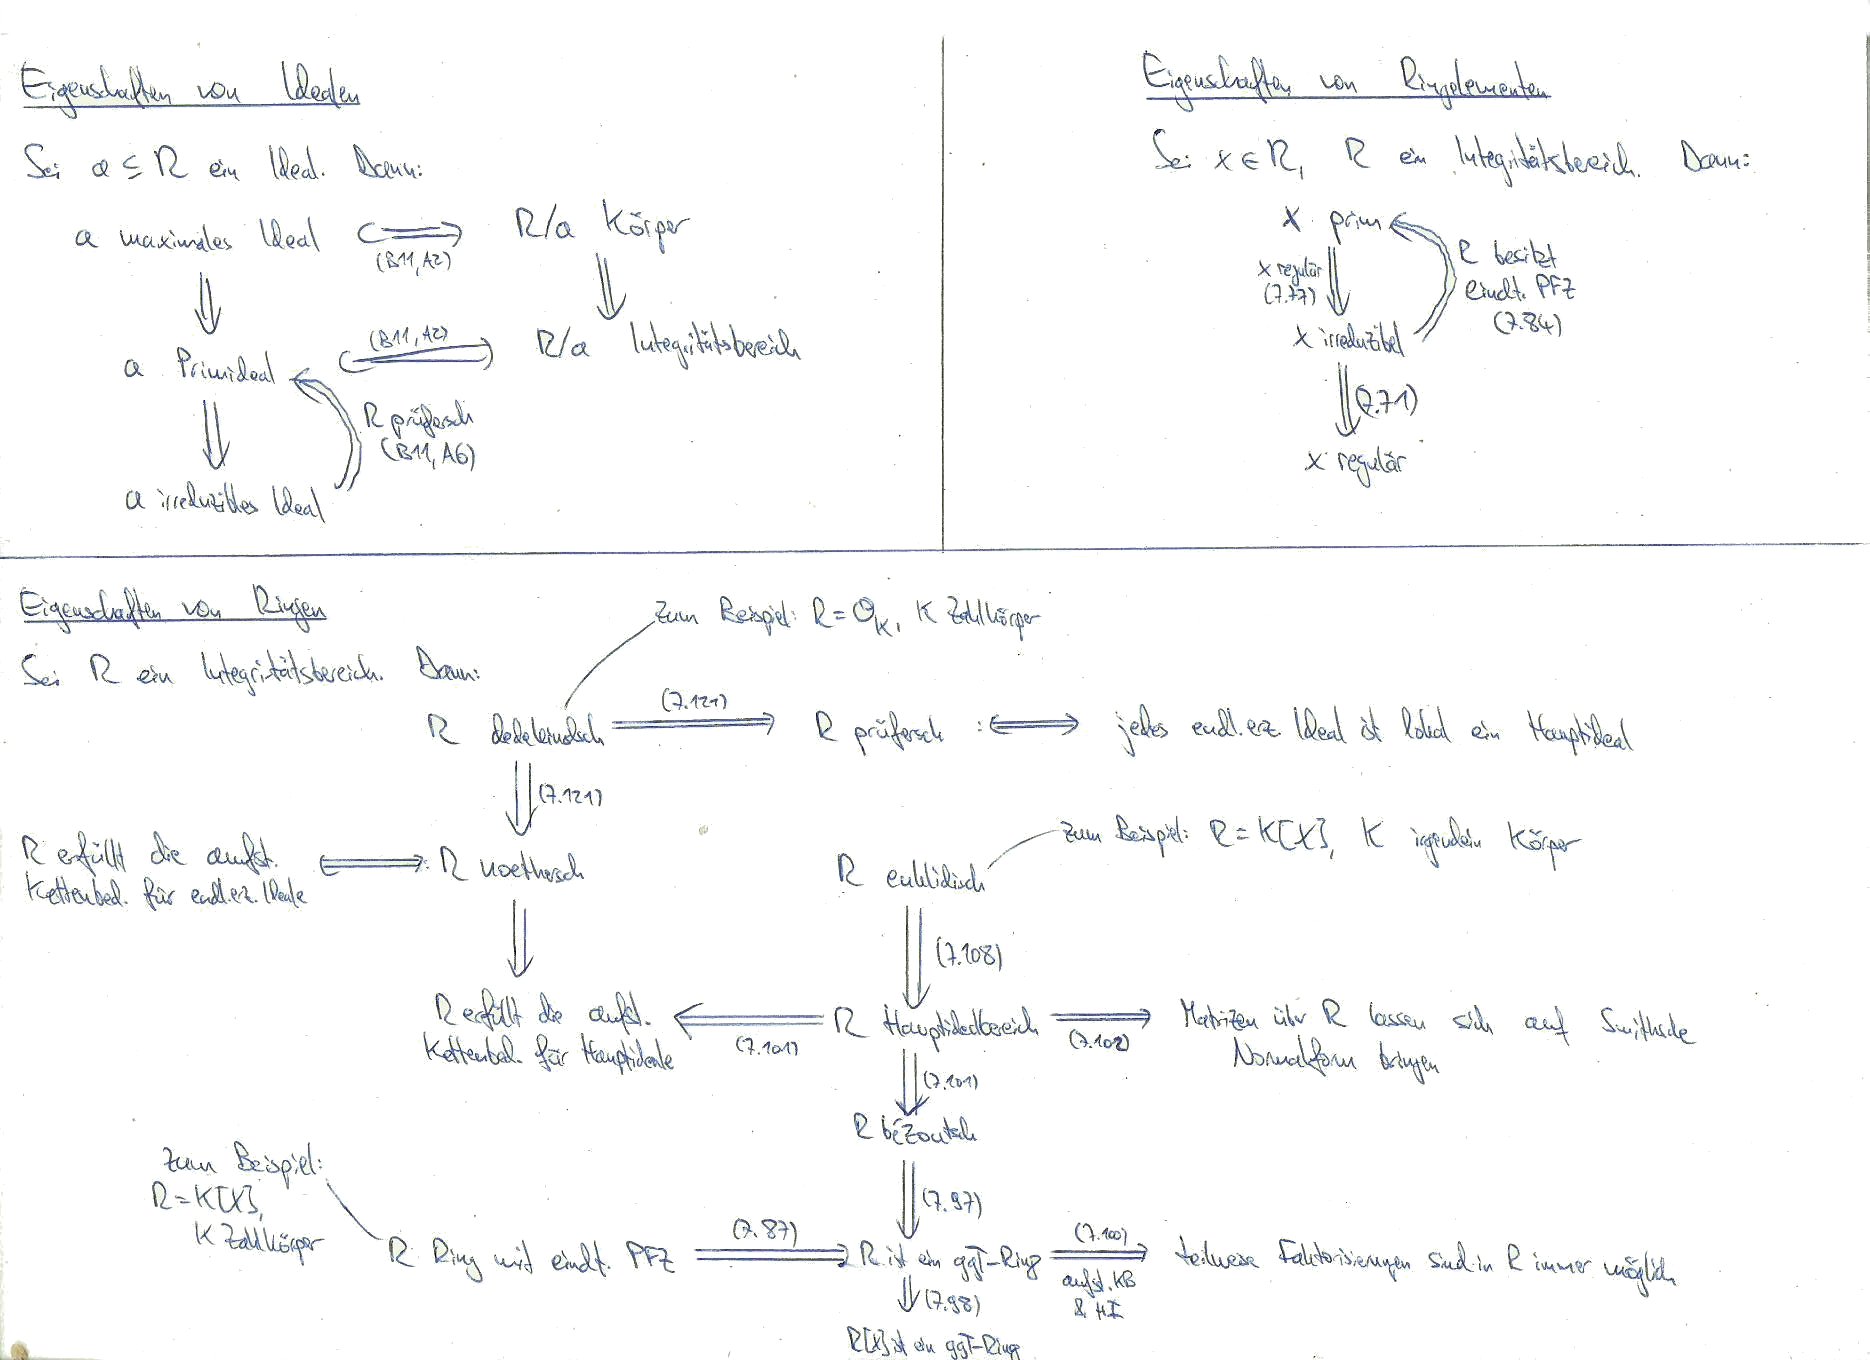 Eigenschaften von Idealen
Sei a ⊆ R ein Ideal. Dann:
a maximales Ideal ⟺ R/a Körper
(B11, A2)
(B11, A2)
a Primideal ⟺ R/a Integritätsbereich
R prüfersch
(B11, A6)
a irreduzibles Ideal
Eigenschaften von Ringelementen
Sei x ∈ R, R ein Integritätsbereich. Dann:
x prim
x regulär
(7.77)
R besitzt
eindt. PFZ
(7.84)
x irreduzibel
(7.71)
x regulär
Eigenschaften von Ringen
zum Beispiel: R = O_K, K Zahlkörper
Sei R ein Integritätsbereich. Dann:
(7.121)
R dedekindsch ⟹ R prüfersch :⟺ jedes endl. erz. Ideal ist lokal ein Hauptideal
(7.121)
zum Beispiel: R = K[X], K irgendein Körper
R erfüllt die aufst.
Kettenbed. für endl. erz. Ideale
⟺: R noethersch
R euklidisch
(7.108)
R erfüllt die aufst.
Kettenbed. für Hauptideale
(7.101)
R Hauptidealbereich
(7.102)
Matrizen über R lassen sich auf Smithsche
Normalform bringen
(7.101)
R bézoutsch
zum Beispiel:
R = K[X],
K Zahlkörper
(7.97)
R Ring mit eindt. PFZ
(7.87)
R ist ein ggT-Ring
(7.100)
aufst. KB
& HI
teilweise Faktorisierungen sind in R immer möglich
(7.98)
R[X] ist ein ggT-Ring